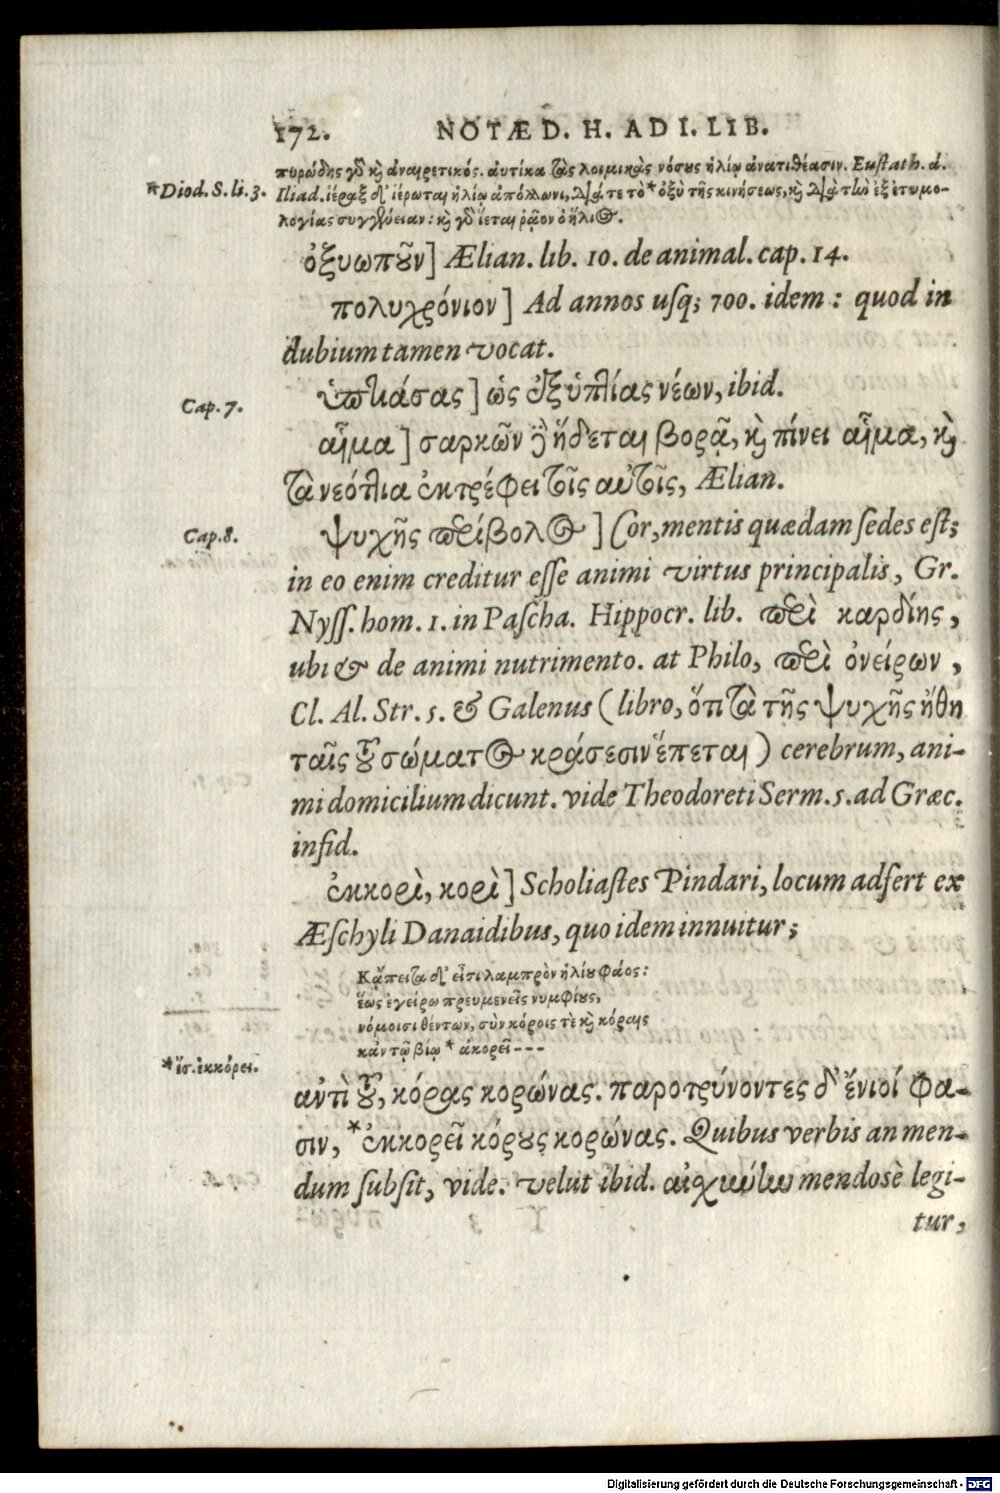 172. NOTÆ D. H. AD I. LIB.
πυρώδης γὸ κ̀ ἀναιρετικός. αὐτίκα τὰς λοιμικὰς νόσους ἡλίῳ ἀνατιθέασιν. Eustath. ά.
*Diod. S. li. 3.
Iliad. ἱέραξ δ' ἱέρωται ἡλίῳ ἀπόλλωνι, διά τε τὸ * ὀξὺ τῆς κινήσεως, κ̀ διὰ τὴν ἐξ ἐτυμο-
λογίας συγγένειαν: κ̀ γὸ ἵεται ῥᾷον ὁ ἥλιος.
ὀξυωποῦν] Ælian. lib. 10. de animal. cap. 14.
πολυχρόνιον] Ad annos usq; 700. idem: quod in
dubium tamen vocat.
Cap. 7.
ὑπτιάσας] ὡς ἐξυπτίας νέων, ibid.
αἷμα] σαρκῶν ἢ ἥδεται βορᾷ, κ̀ πίνει αἷμα, κ̀
τὰ νεόττια ἐκτρέφει τοῖς αὐτοῖς, Ælian.
Cap. 8.
ψυχῆς περίβολος] Cor, mentis quædam sedes est;
in eo enim creditur esse animi virtus principalis, Gr.
Nyss. hom. 1. in Pascha. Hippocr. lib. περὶ καρδίης,
ubi & de animi nutrimento. at Philo, περὶ ὀνείρων,
Cl. Al. Str. 5. & Galenus (libro, ὅτι τὰ τῆς ψυχῆς ἤθη
ταῖς τοῦ σώματος κράσεσιν ἕπεται) cerebrum, ani-
mi domicilium dicunt. vide Theodoreti Serm. 5. ad Græc.
infid.
ἐκκορὶ, κορὶ] Scholiastes Pindari, locum adfert ex
Æschyli Danaidibus, quo idem innuitur;
Κᾄπειτα δ' εἶσι λαμπρὸν ἡλίου φάος:
ἕως ἐγείρω πρευμενεῖς νυμφίους,
νόμοισι θέντων, σὺν κόροις τὲ κ̀ κόραις
κἀν τῷ βίῳ * ἀκορεῖ---
*ἴσ. ἐκκόρει.
αὐτὶ τοῦ, κόρας κορώνας. παροτρύνοντες δ' ἔνιοί φα-
σιν, *ἐκκορεῖ κόρους κορώνας. Quibus verbis an men-
dum subsit, vide. velut ibid. αἰσχύλω mendosè legi-
tur,
Digitalisierung gefördert durch die Deutsche Forschungsgemeinschaft - DFG